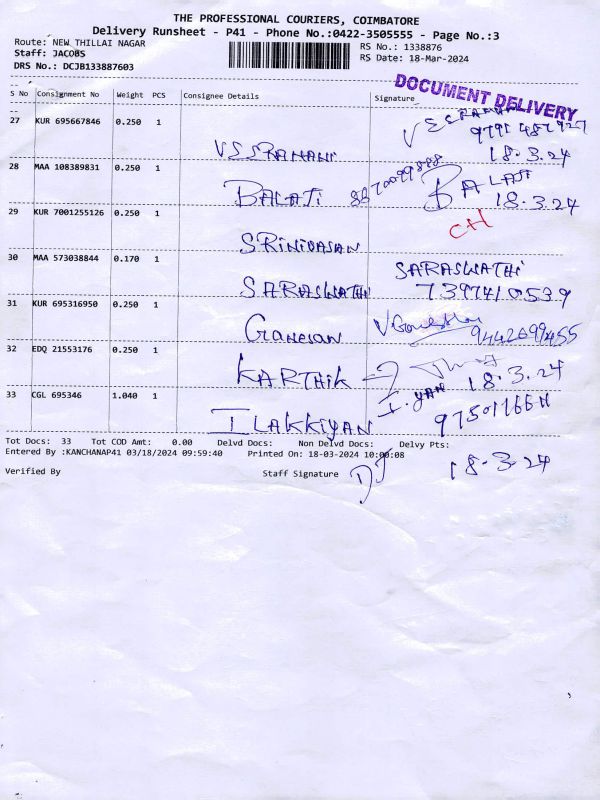 THE PROFESSIONAL COURIERS, COIMBATORE
Delivery Runsheet - P41 - Phone No.:0422-3505555 - Page No.:3
Route: NEW THILLAI NAGAR
Staff: JACOBS
DRS No.: DCJB133887603
RS No.: 1338876
RS Date: 18-Mar-2024
DOCUMENT DELIVERY
S No Consignment No Weight PCS Consignee Details Signature
27 KUR 695667846 0.250 1
18.3.24
28 MAA 108389831 0.250 1 BALAJI BALAJI
18.3.24
29 KUR 7001255126 0.250 1 SRINIVASAN CH
30 MAA 573038844 0.170 1 SARASWATHI SARASWATHI
7397410539
31 KUR 695316950 0.250 1 Ganesan
9442699455
32 EDQ 21553176 0.250 1 KARTHIK 18.3.24
33 CGL 695346 1.040 1 ILAKKIYAN I.YAN
Tot Docs: 33 Tot COD Amt: 0.00 Delvd Docs: Non Delvd Docs: Delvy Pts:
Entered By :KANCHANAP41 03/18/2024 09:59:40 Printed On: 18-03-2024 10:00:08
18.3.24
Verified By Staff Signature